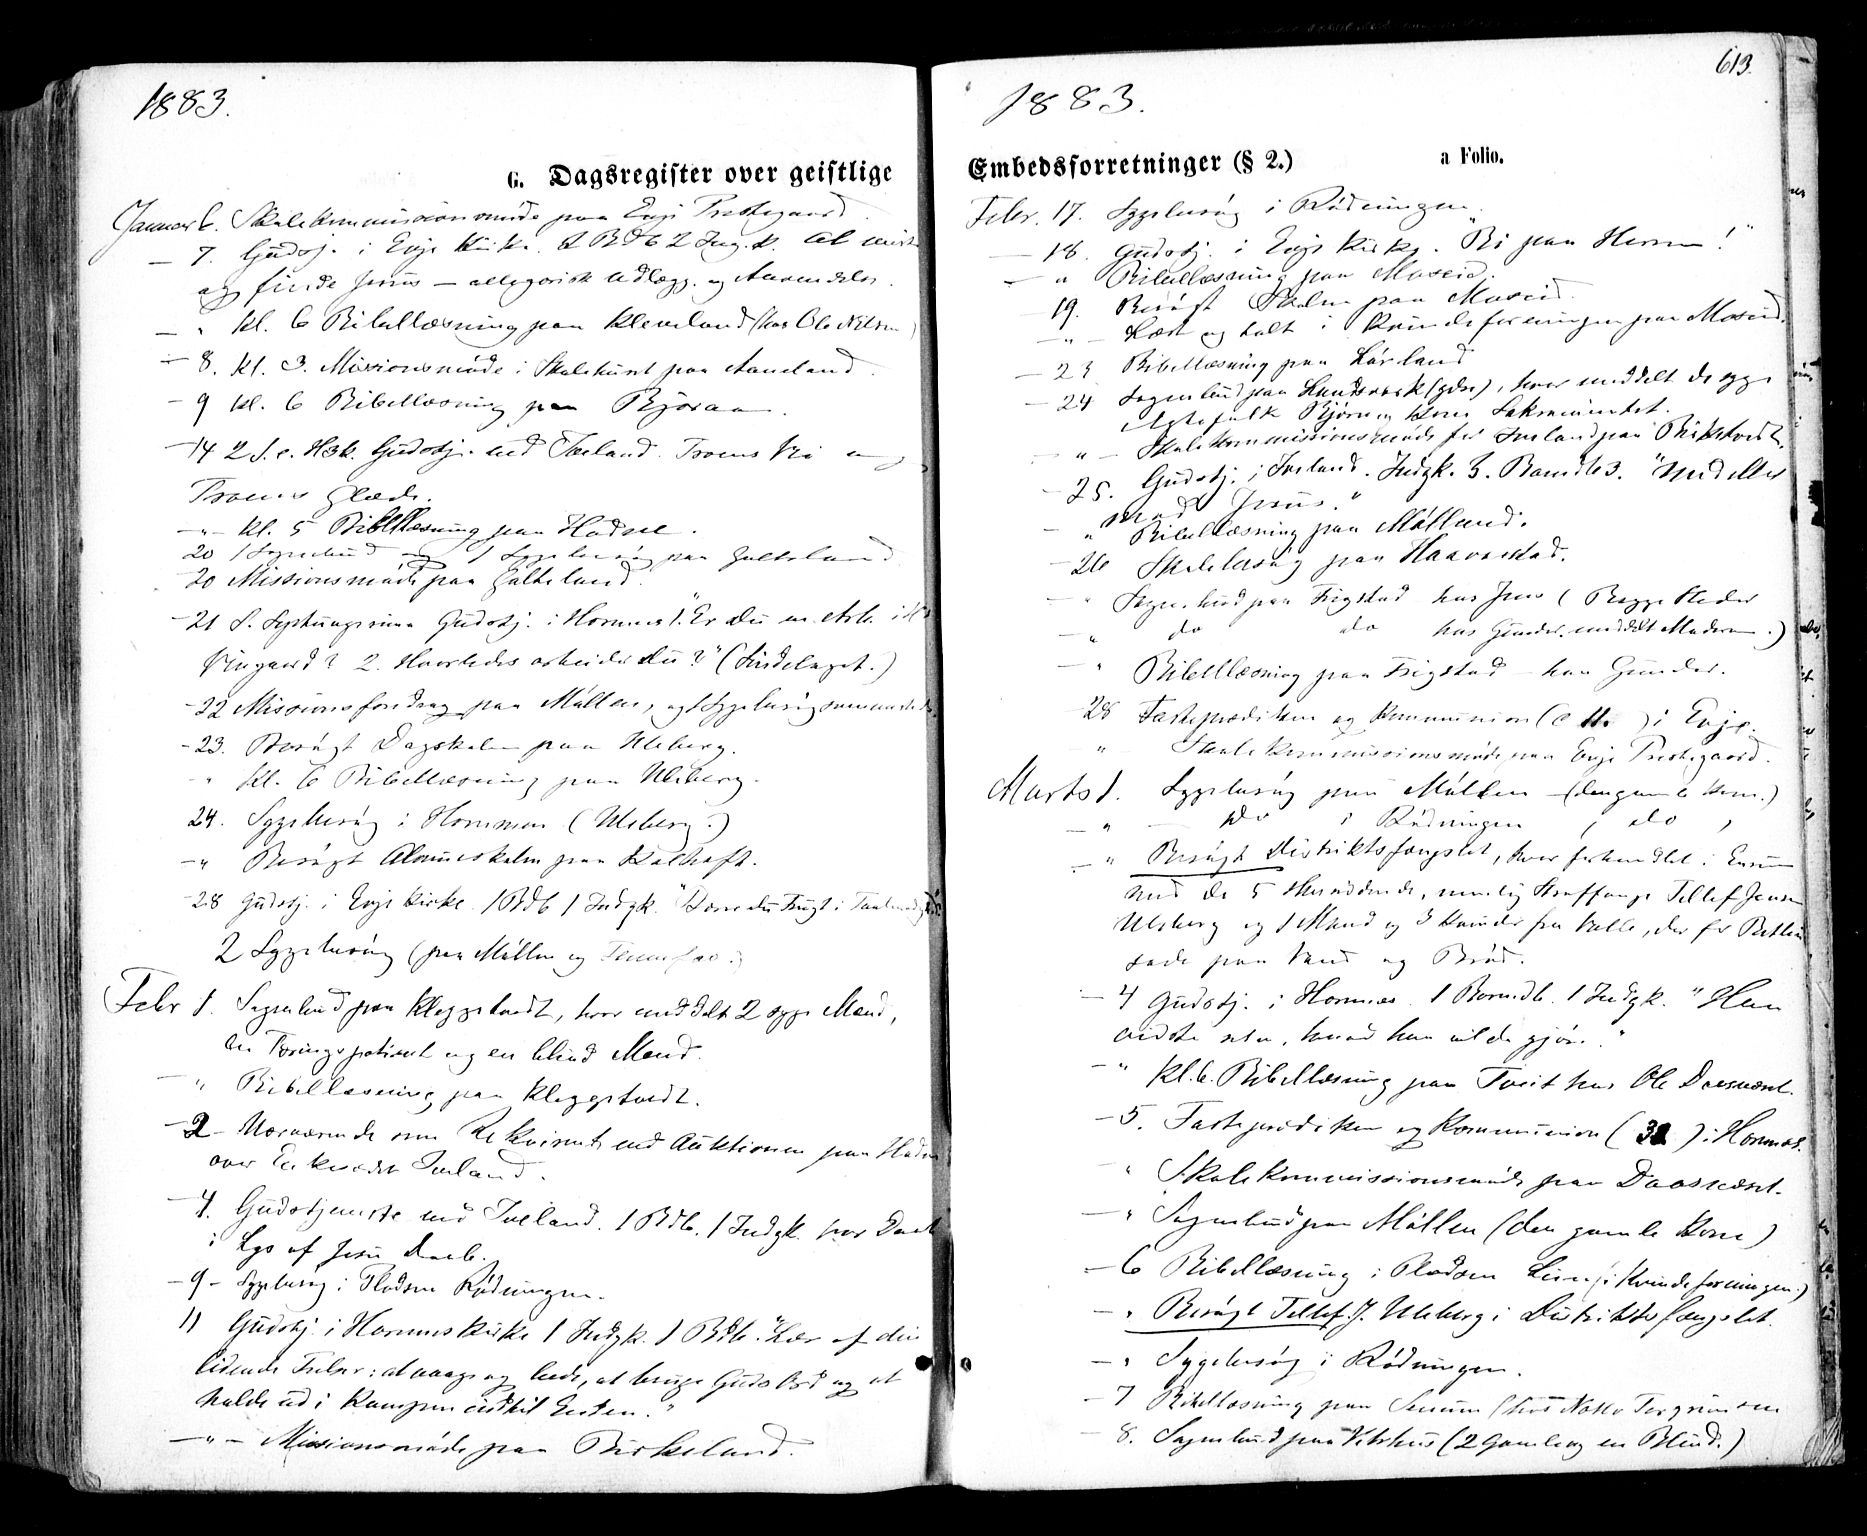 1883.
G. Dagsregister over geistlige
Januar 6. Skolekommissionsmøde paa Evje Prestegaard.
– 7. Gudstj. i Evje Kirke. 2 Bdb 2 Indg.k. At miste
og finde Jesus – allegorisk Udlægg. og Anvendelse.
– " Kl. 6 Bibellæsning paa Kleveland (hos Ole Nilsen)
– 8. Kl. 3. Missionsmøde i Skolehuset paa Aaneland.
– 9 Kl. 6 Bibellæsning paa Bjoraa.
– 14 2 S. e. H3k. Gudstj. ved Iveland. Troens Vei og
Troens Glæde.
– " – Kl. 5 Bibellæsning paa Hodne.
20 1 Sognebud og 1 Sygebesøg paa Galteland
– 20 Missionsmøde paa Galteland.
– 21 S. Septuagesima Gudstj. i Hornnes 1. "Er Du en Arb. i H's
Vingaard? 2. Hvorledes arbeider Du?" (Sindelaget.)
– 22 Missionsforedrag paa Møllen, og 1 Sygebesøg sammesteds.
– 23. Besøgt Dagskolen paa Uleberg.
– " Kl. 6 Bibellæsning paa Uleberg.
24. Sygebesøg i Hommen (Uleberg.)
– " Besøgt Almueskolen paa Kalhaft.
– 28 Gudstj. i Evje Kirke 1 Bdb 1 Indgk. "Bære Du Frugt i Taalmodighed"
2 Sygebesøg (paa Møllen og
Febr 1. Sognebud paa Kleggstvedt, hvor meddelt 2 syge Mænd,
en Tæringspatient og en blind Mand.
– " Bibellæsning paa Kleggstvedt.
– 2 – Nærværende som Rekvirent ved Auktionen paa
over Enkesædet Iveland.
– 4. Gudstjeneste ved Iveland. 1 Bdb. 1 Indgk. vor Daab
i Lys af Jesu Daab.
– 9 – Sygebesøg i Pladsen Rødningen.
11 Gudstj. i Hornnes Kirke 1 Indgk. 1 Bdb. "Lær af din
lidende Frelser: at vaage og bede, at bruge Guds Ord og at
holde ud i Kampen indtil Enden."
– " – Missionsmøde paa Birkeland.
613.
1883.
Embedsforretninger (§ 2.) a Folio.
Febr. 17. Sygebesøg i Rødningen.
– 18. Gudstj. i Evje Kirke. "Bi paa Herren!"
– " Bibellæsning paa Moseid.
19. Besøgt Skolen paa Moseid.
– " – Læst og talt i Kvindeforeningen paa Moseid.
– 23 Bibellæsning paa Lørland
– 24 Sognebud paa Landsverk (ydre), hvor meddelt de syge
Ægtefolk Bjørn og Kone Sakramentet.
– " – Skolekommissionsmøde for Iveland paa Birketvedt.
– 25. Gudstj. i Iveland. Indgk. 3. Barndb 3. "Nedellei
med Jesus."
– " Bibellæsning paa Mølland.
– 26 Skolebesøg paa Haaverstad.
– " Sognebud paa Frigstad hos Jens (Begge Steder
– " do do hos Gunder, meddelt Moderen.)
– " Bibellæsning paa Frigstad – hos Gunder.
– 28 Fasteprædiken og Kommunion ( ) i Evje.
" Skolekommissionsmøde paa Evje Prestegaard.
Marts 1. Sygebesøg paa Møllen – (den gamle Kone.)
– " – do i Rødningen ( do )
– " Besøgt Distriktsfængslet, hvor forhandlet i Enrum
med de 5 tilværende, nemlig Straffange Tellef Jensen
Uleberg og 1 Mand og 3 Kvinder fra Valle, der for Betleri
sade paa Vand og Brød.
– 4 Gudstj. i Hornnes. 1 Barndb. 1 Indgk. "Han
vidste selv, hvad han vilde gjøre."
– " Kl. 6. Bibellæsning paa Tveit hos Ole Daasnæst.
– 5. Fasteprædiken og Kommunion (32) i Hornnes.
" Skolekommissionsmøde paa Daasnæst.
– " Sognebud paa Møllen (den gamle Kone)
– 6 Bibellæsning i Pladsen Leiren (i Kvindeforeningen.)
– " Besøgt Tellef J. Uleberg i Distriktsfængslet.
– " Sygebesøg i Rødningen.
– 7 Bibellæsning paa Senum (hos Notto Torgrimsen
8. Sognebud paa Vetrhus (2 Gamle og en Blind.)